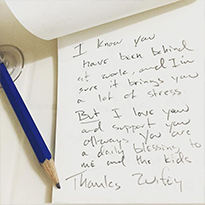 I know you
have been behind
at work, and I'm
sure it brings you
a lot of stress.
But I love you
and support you
always you are
a daily blessing to
me and the kids
Thanks Wifey